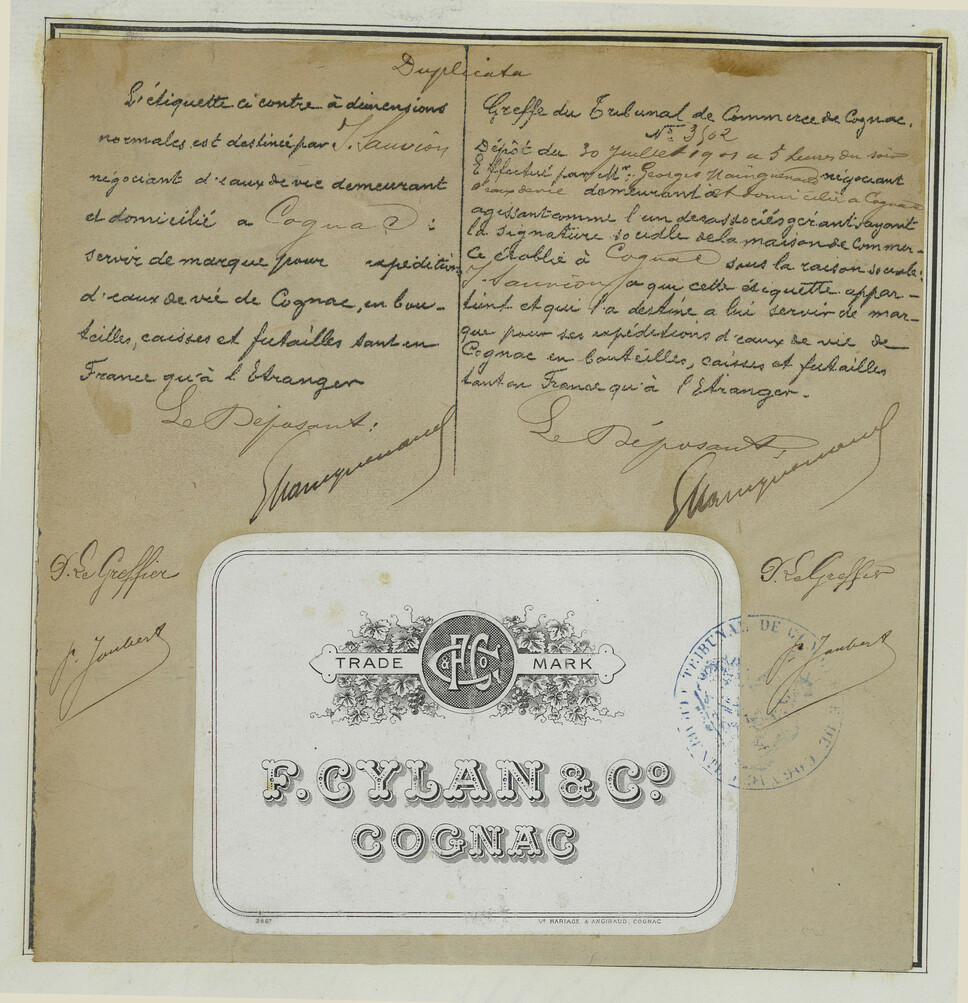 Duplicata
L'étiquette ci contre à dimensions
normales est destinée par J. Sauvion
négociant d'eaux de vie demeurant
et domicilié a Cognac :
servir de marque pour expédition
d'eaux de vie de Cognac, en bou-
teilles, caisses et futailles tant en
France qu'à l'Etranger
Le Déposant :
Greffe du Tribunal de Commerce de Cognac.
No 3502
Dépôt du 30 Juillet 1901 a 5 heures du soir
Effectué par Mr. Georges négociant
d'eaux de vie demeurant et domicilié a Cognac
agissant comme l'un des associés gérant, ayant
la signature sociale de la maison de Commer-
ce établie à Cognac sous la raison sociale:
J. Sauvion a qui cette étiquette appar-
tient et qui l'a destiné a lui servir de mar-
que pour ses expéditions d'eaux de vie de
Cognac en bouteilles, caisses et futailles
tant en France qu'à l'Etranger.
Le Déposant
P. Le Greffier
P. Joubert
P. Le Greffier
P. Joubert
TRIBUNAL DE DE COGNAC
TRADE F&Co MARK
F. CYLAN & Co
COGNAC
2867
Ve MARIAGE & ANGIBAUD, COGNAC